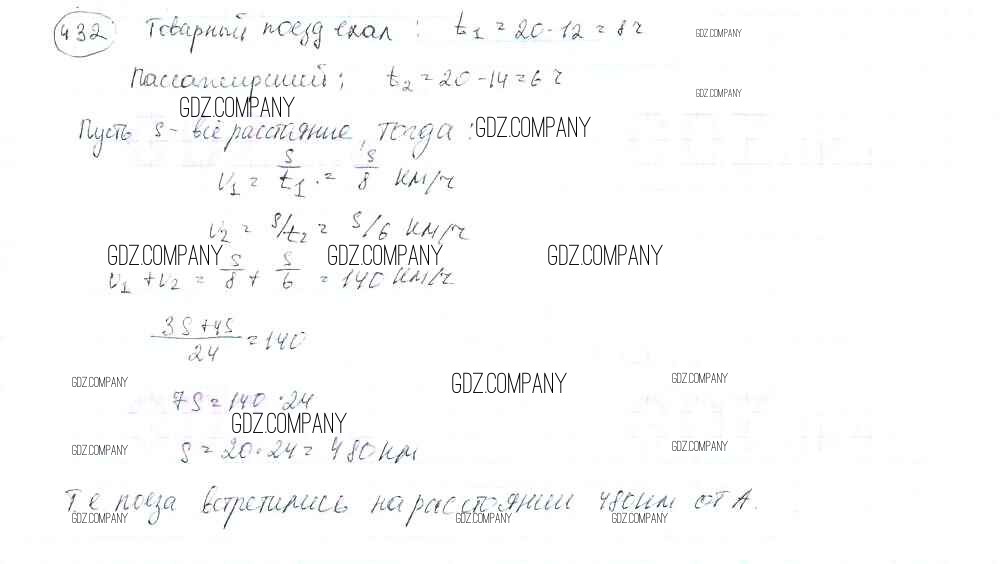 432 Товарный поезд ехал : t₁ = 20 - 12 = 8 ч
GDZ.COMPANY
Пассажирский ; t₂ = 20 - 14 = 6 ч
GDZ.COMPANY
GDZ.COMPANY
Пусть S - всё расстояние, тогда :
GDZ.COMPANY
V₁ = S/t₁ = S/8 км/ч
V₂ = S/t₂ = S/6 км/ч
GDZ.COMPANY GDZ.COMPANY GDZ.COMPANY
V₁ + V₂ = S/8 + S/6 = 140 км/ч
3S + 4S / 24 = 140
GDZ.COMPANY GDZ.COMPANY GDZ.COMPANY
7S = 140 · 24
GDZ.COMPANY
S = 20 · 24 = 480 км
GDZ.COMPANY GDZ.COMPANY
Т е поезда встретились на расстоянии 480 км от А.
GDZ.COMPANY GDZ.COMPANY GDZ.COMPANY